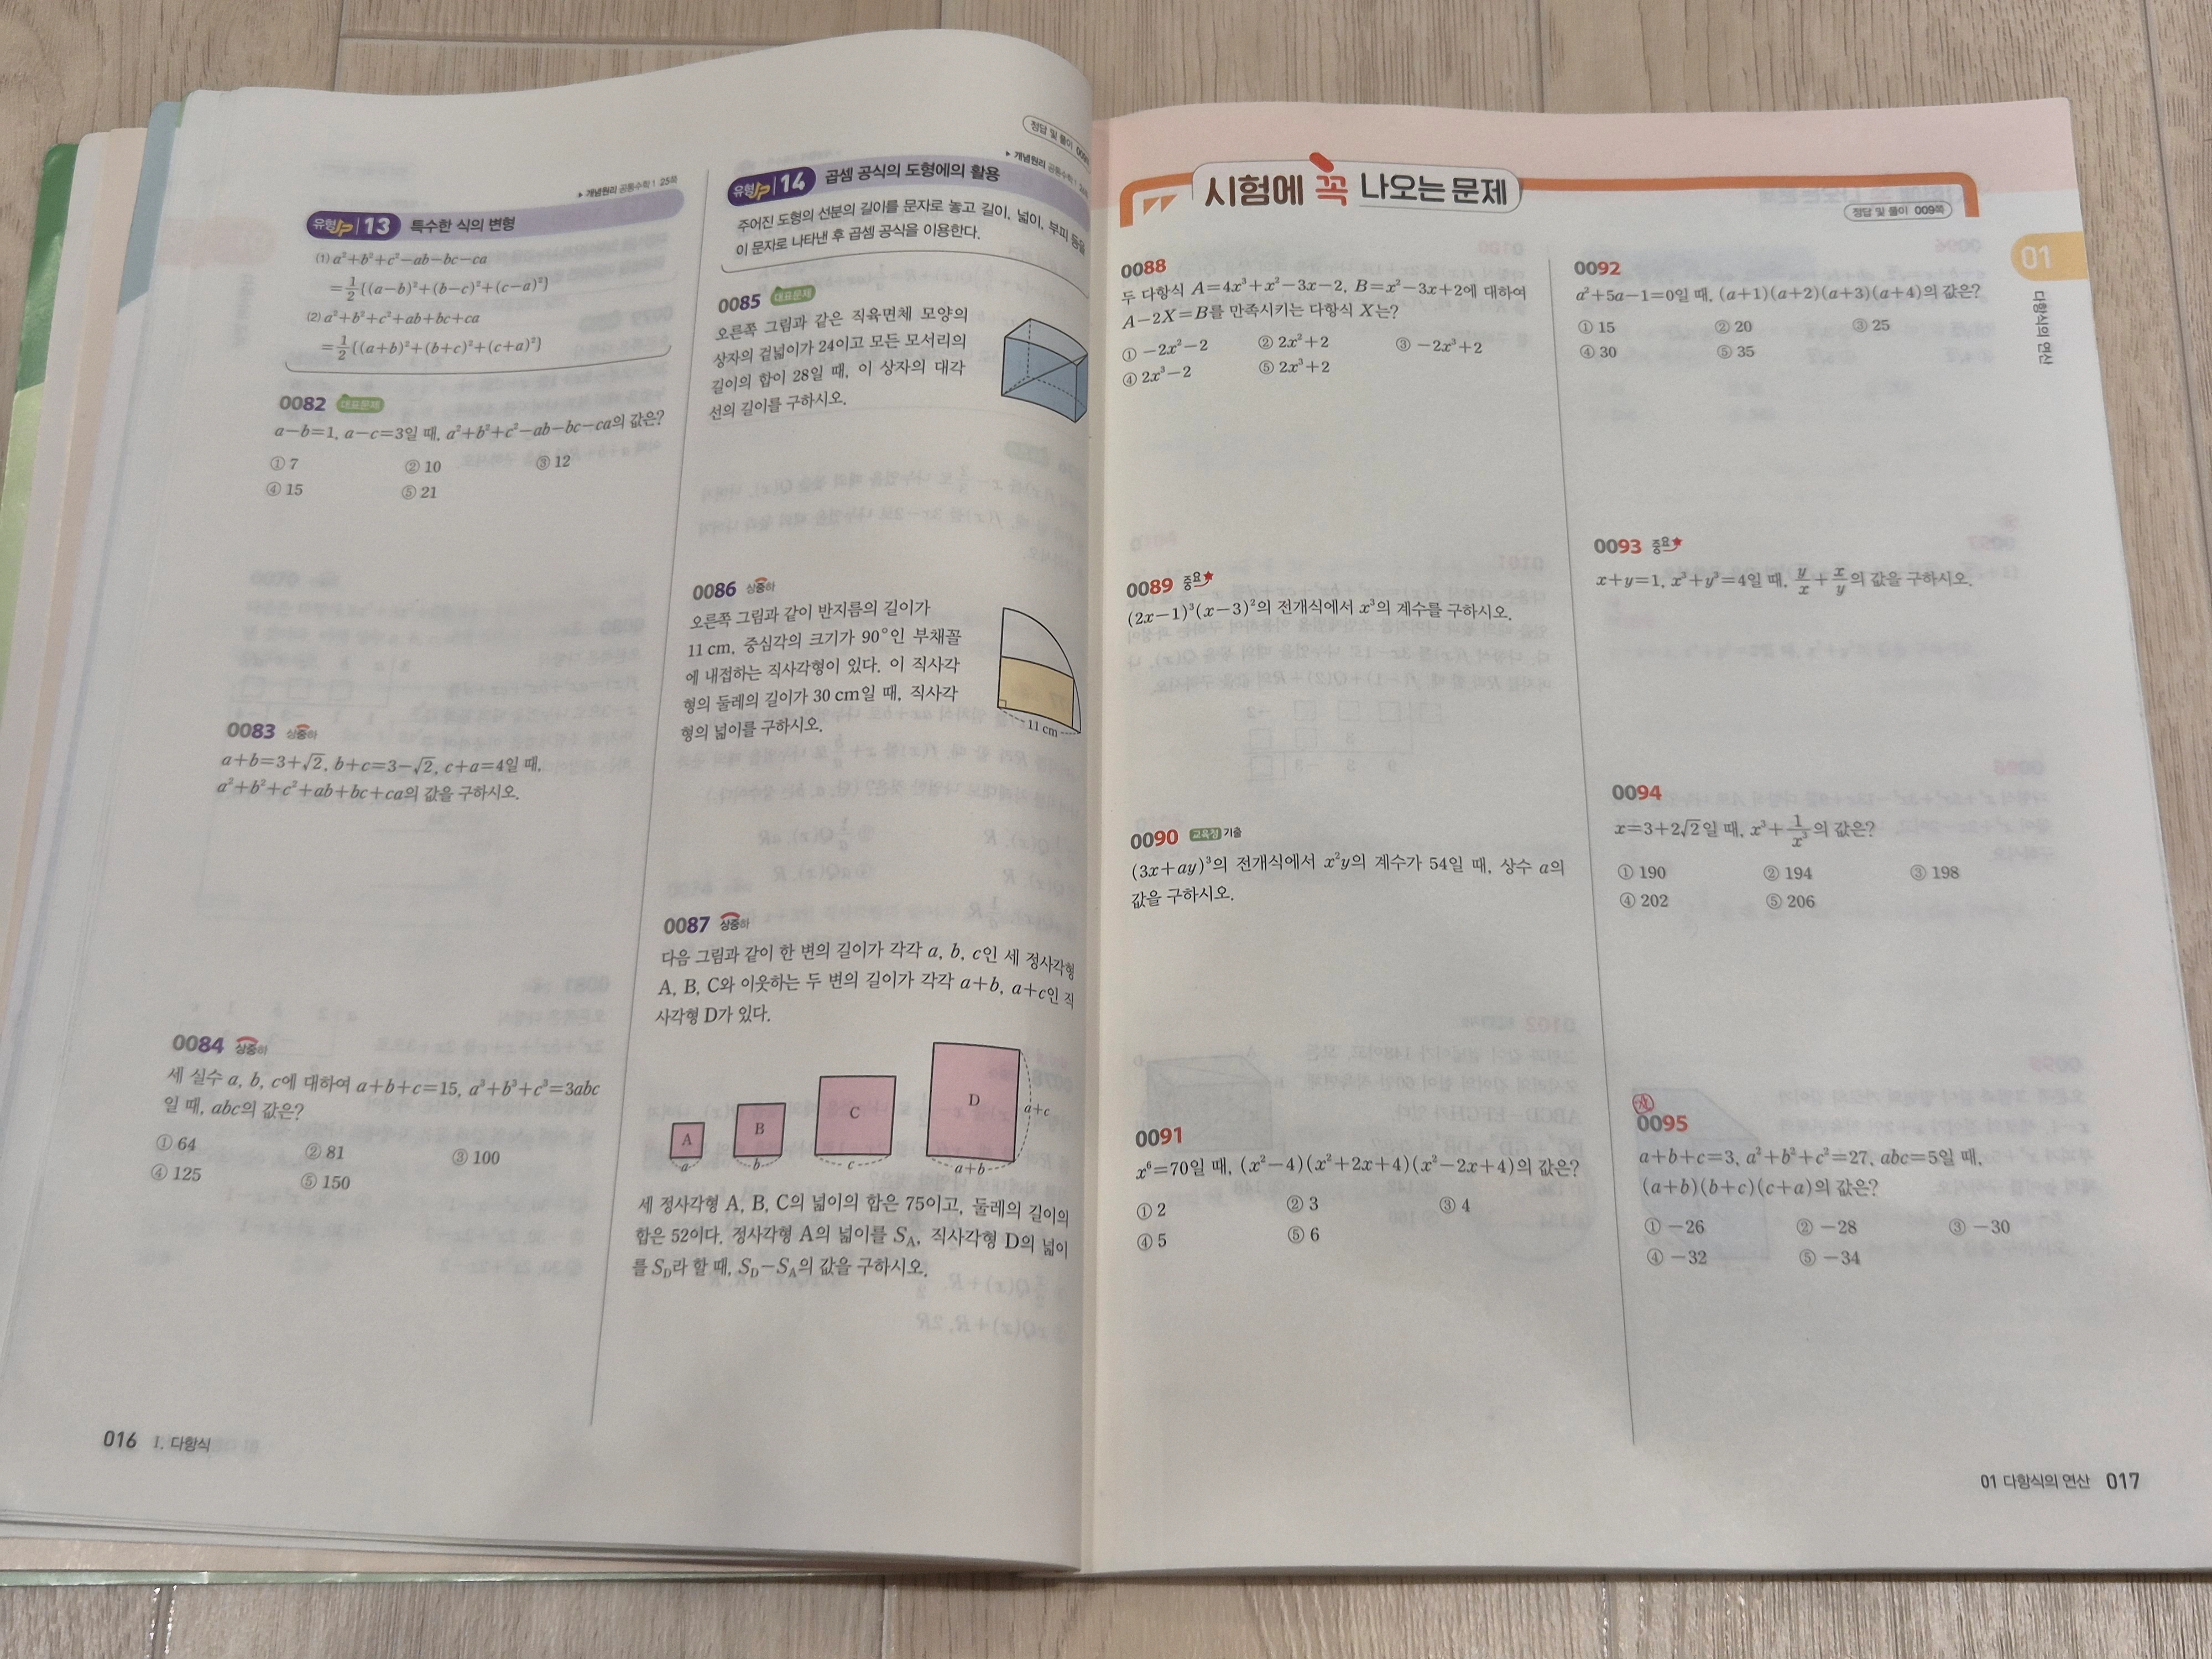 ▶ 개념원리 공통수학 1 25쪽
유형UP 13 특수한 식의 변형
(1) a²+b²+c²-ab-bc-ca
=1/2{(a-b)²+(b-c)²+(c-a)²}
(2) a²+b²+c²+ab+bc+ca
=1/2{(a+b)²+(b+c)²+(c+a)²}
0082 대표문제
a-b=1, a-c=3일 때, a²+b²+c²-ab-bc-ca의 값은?
① 7 ② 10 ③ 12
④ 15 ⑤ 21
0083 상중하
a+b=3+√2, b+c=3-√2, c+a=4일 때,
a²+b²+c²+ab+bc+ca의 값을 구하시오.
0084 상중하
세 실수 a, b, c에 대하여 a+b+c=15, a³+b³+c³=3abc
일 때, abc의 값은?
① 64 ② 81 ③ 100
④ 125 ⑤ 150
016 I. 다항식
정답 및 풀이
▶ 개념원리 공통수학 1
유형UP 14 곱셈 공식의 도형에의 활용
주어진 도형의 선분의 길이를 문자로 놓고 길이, 넓이, 부피 등을
이 문자로 나타낸 후 곱셈 공식을 이용한다.
0085 대표문제
오른쪽 그림과 같은 직육면체 모양의
상자의 겉넓이가 24이고 모든 모서리의
길이의 합이 28일 때, 이 상자의 대각
선의 길이를 구하시오.
0086 상중하
오른쪽 그림과 같이 반지름의 길이가
11 cm, 중심각의 크기가 90°인 부채꼴
에 내접하는 직사각형이 있다. 이 직사각
형의 둘레의 길이가 30 cm일 때, 직사각
형의 넓이를 구하시오.
11 cm
0087 상중하
다음 그림과 같이 한 변의 길이가 각각 a, b, c인 세 정사각형
A, B, C와 이웃하는 두 변의 길이가 각각 a+b, a+c인 직
사각형 D가 있다.
A B C D a+c
a b c a+b
세 정사각형 A, B, C의 넓이의 합은 75이고, 둘레의 길이의
합은 52이다. 정사각형 A의 넓이를 S_A, 직사각형 D의 넓이
를 S_D라 할 때, S_D-S_A의 값을 구하시오.
시험에 꼭 나오는 문제
정답 및 풀이 009쪽
0088
두 다항식 A=4x³+x²-3x-2, B=x²-3x+2에 대하여
A-2X=B를 만족시키는 다항식 X는?
① -2x²-2 ② 2x²+2 ③ -2x³+2
④ 2x³-2 ⑤ 2x³+2
0089 중요
(2x-1)³(x-3)²의 전개식에서 x³의 계수를 구하시오.
0090 교육청 기출
(3x+ay)³의 전개식에서 x²y의 계수가 54일 때, 상수 a의
값을 구하시오.
0091
x⁶=70일 때, (x²-4)(x²+2x+4)(x²-2x+4)의 값은?
① 2 ② 3 ③ 4
④ 5 ⑤ 6
0092
a²+5a-1=0일 때, (a+1)(a+2)(a+3)(a+4)의 값은?
① 15 ② 20 ③ 25
④ 30 ⑤ 35
0093 중요
x+y=1, x³+y³=4일 때, y/x+x/y의 값을 구하시오.
0094
x=3+2√2일 때, x³+1/x³의 값은?
① 190 ② 194 ③ 198
④ 202 ⑤ 206
0095
a+b+c=3, a²+b²+c²=27, abc=5일 때,
(a+b)(b+c)(c+a)의 값은?
① -26 ② -28 ③ -30
④ -32 ⑤ -34
01
다항식의 연산
01 다항식의 연산 017